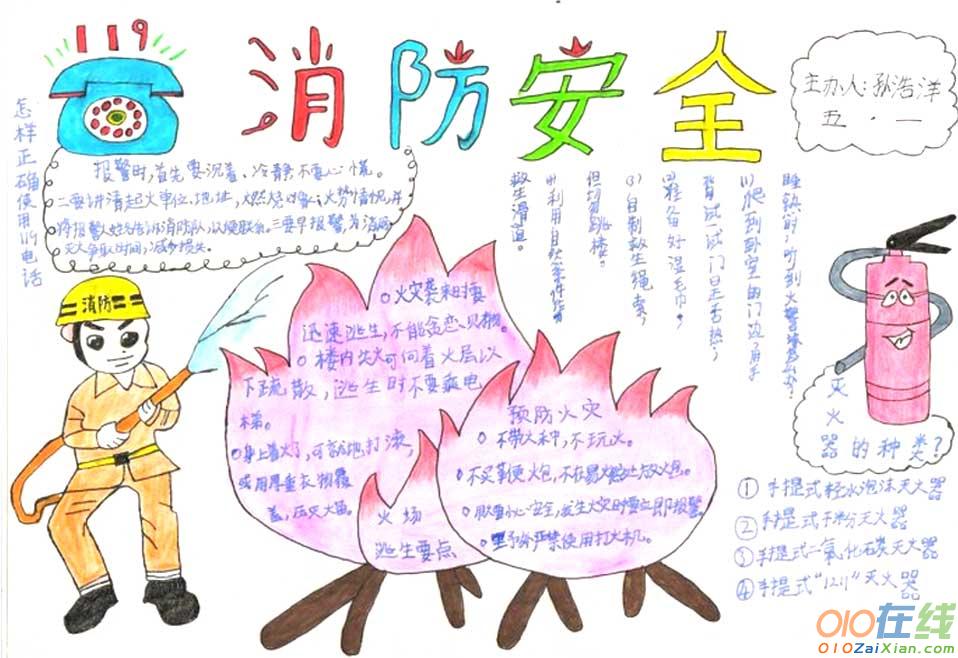 119
消防安全
主办人:孙浩洋
五·一
怎样正确使用119电话
报警时,首先要沉着、冷静不要心慌。
二要讲清起火单位、地址,燃烧对象、火势情况,并
将报警人姓名告诉消防队,以便联系。三要早报警,为消防
灭火争取时间,减少损失。
睡梦中,听到火警
(1)爬到卧室的门边,用手
背试一试门是否热;
(2)准备好湿毛巾;
(3)自制救生绳索,
但切勿跳楼。
(4)利用自然条件作
救生滑道。
消防
火灾袭来时要
迅速逃生,不能贪恋财物。
楼内失火可向着火层以
下疏散,逃生时不要乘电
梯。
身上着火了,可就地打滚,
或用厚重衣物覆
盖,压灭火苗。
火场
逃生要点
预防火灾
不带火种,不玩火。
不买鞭炮,不在易燃处放火包。
发生火灾时要立即报警
野外严禁使用打火机。
灭火器的种类?
①手提式轻水泡沫灭火器
②手提式干粉灭火器
③手提式二氧化碳灭火器
④手提式"1211"灭火器
010在线
010ZaiXian.com